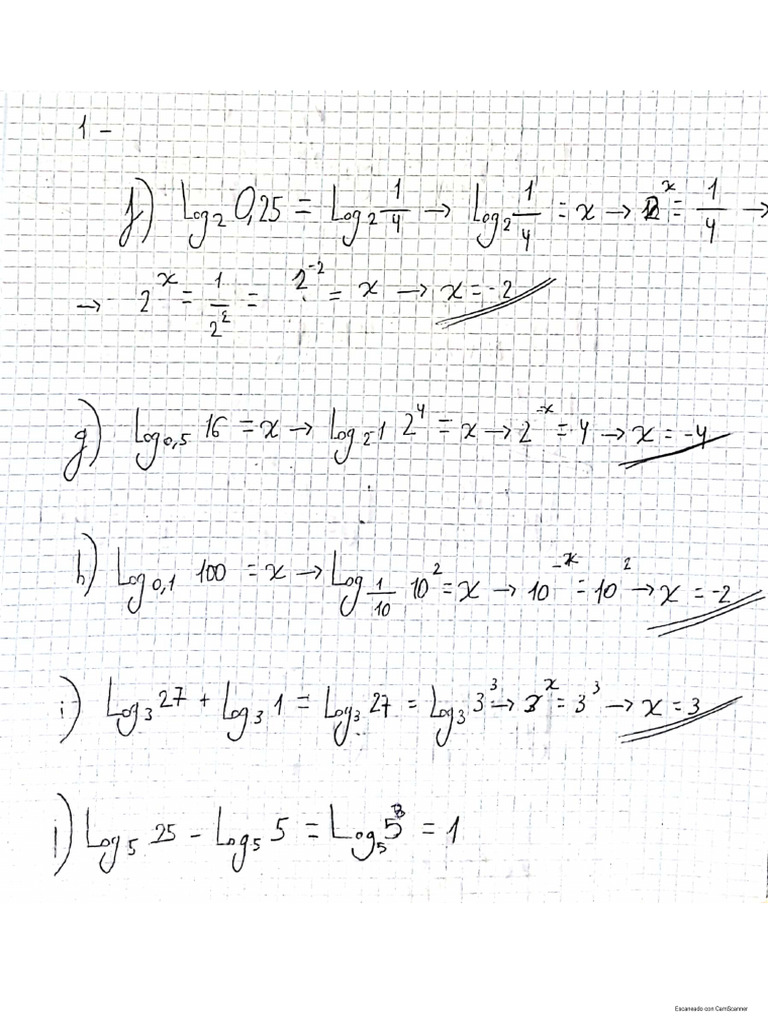 1 -
f) Log₂ 0,25 = Log₂ 1/4 → Log₂ 1/4 = x → 2ˣ = 1/4 →
→ 2ˣ = 1/2² = 2⁻² = x → x = -2
g) Log₀,₅ 16 = x → Log₂-1 2⁴ = x → 2⁻ˣ = 4 → x = -4
h) Log₀,₁ 100 = x → Log 1/10 10² = x → 10⁻ˣ = 10² → x = -2
i) Log₃ 27 + Log₃ 1 = Log₃ 27 = Log₃ 3³ → 3ˣ = 3³ → x = 3
j) Log₅ 25 - Log₅ 5 = Log₅ 5 = 1
Escaneado con CamScanner